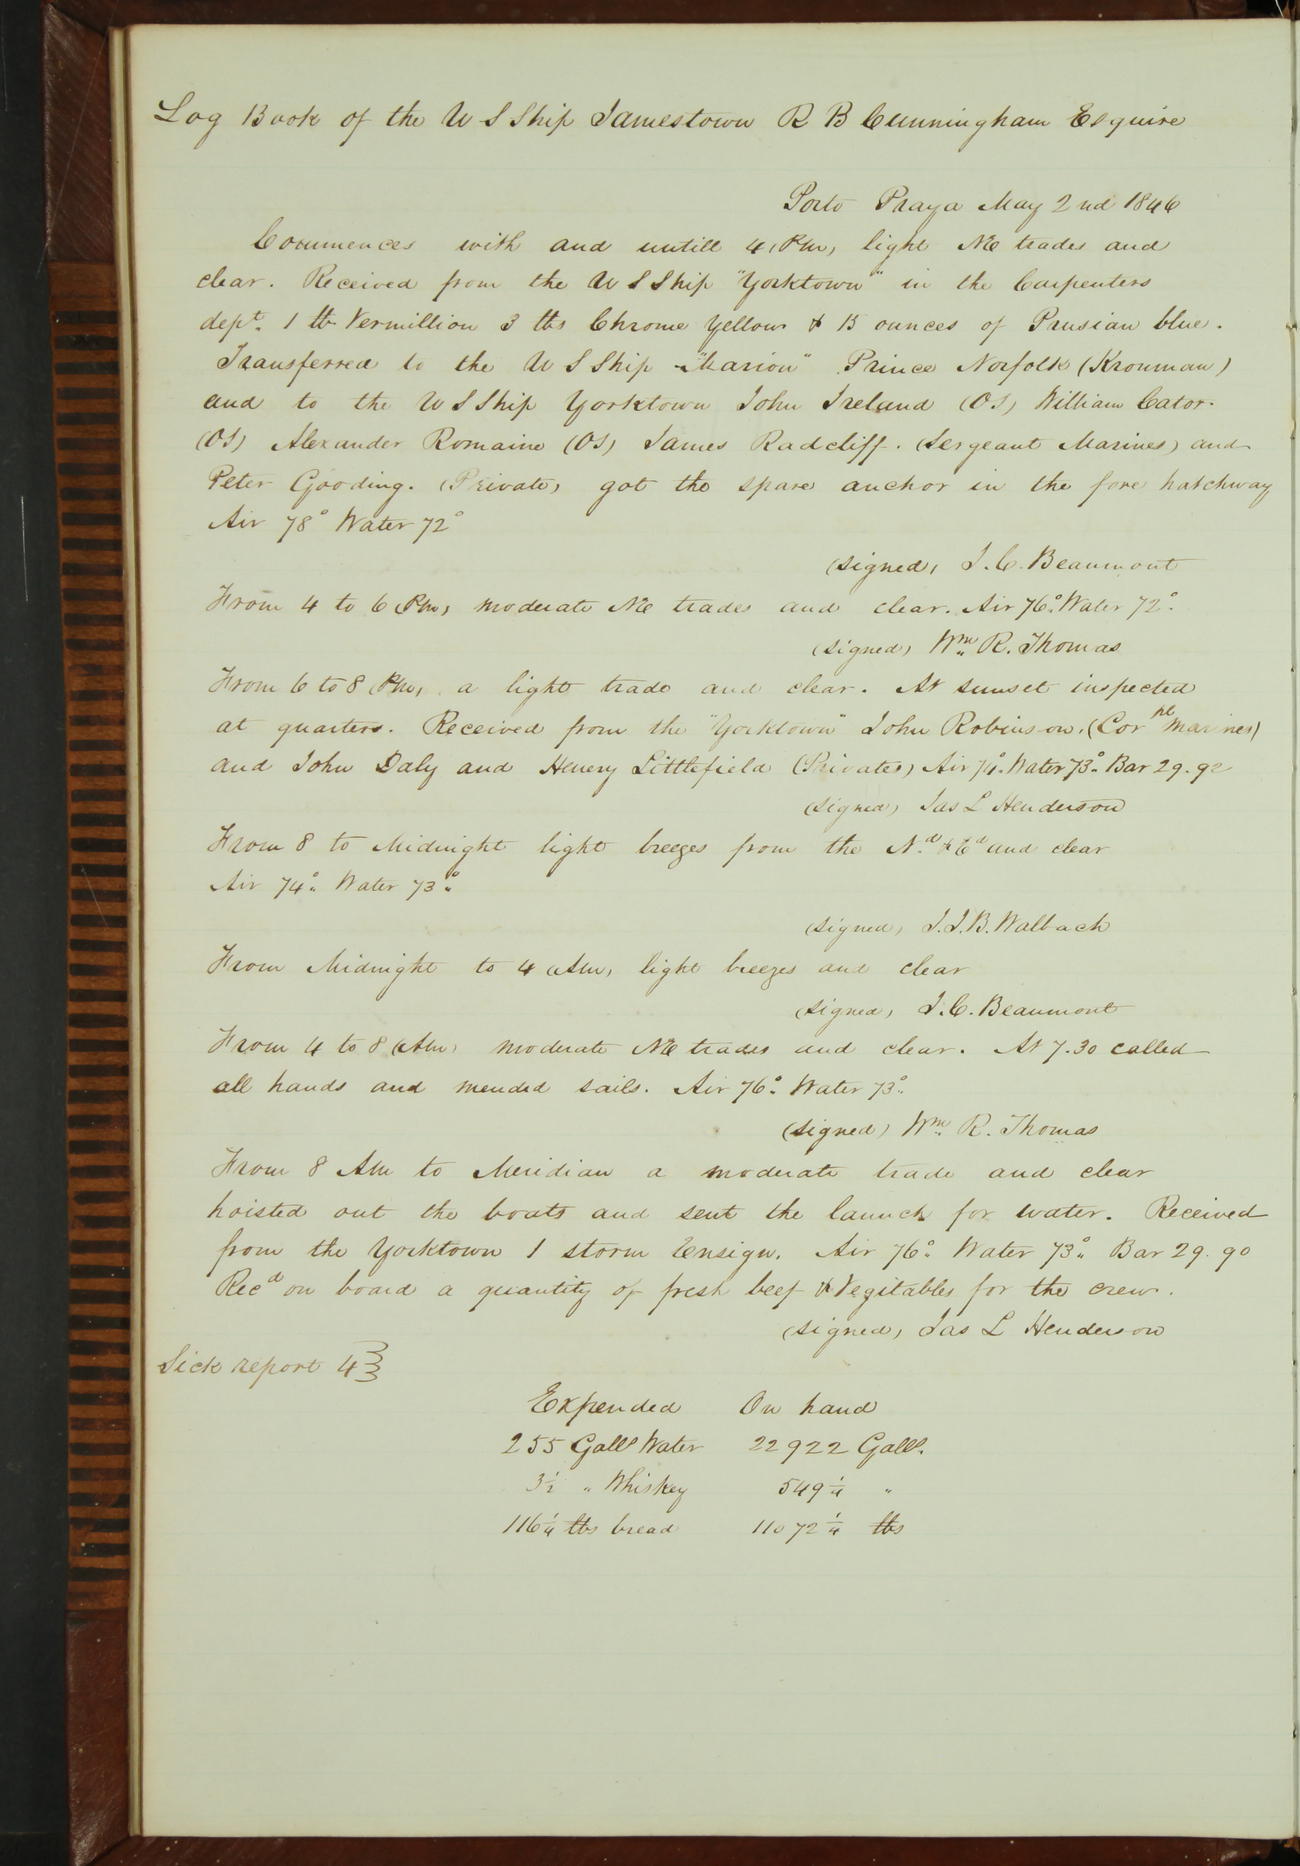 Log Book of the U S Ship Jamestown R B Cunningham Esquire
Porto Praya May 2nd 1846
Commences with and untill 4 (Pm) light NE trades and
clear. Received from the U S Ship "Yorktown" in the Carpenters
dept. 1 lb Vermillion 3 lbs Chrome Yellow & 15 ounces of Prusian blue.
Transferred to the U S Ship "Marion" Prince Norfolk (Krouman)
and to the U S Ship Yorktown John Ireland (OS) William Cator.
(OS) Alexander Romaine (OS) James Radcliff. (Sergeant Marines) and
Peter Gooding. (Private) got the spare anchor in the fore hatchway
Air 78° Water 72°
(signed) J. C. Beaumont
From 4 to 6 (Pm) moderate NE trades and clear. Air 76° Water 72°
(signed) Wm R. Thomas
From 6 to 8 (Pm) a light trade and clear. At sunset inspected
at quarters. Received from the "Yorktown" John Robinson. (Corpl Marines)
and John Daly and Henery Littlefield (Privates) Air 74° Water 73° Bar 29.92
(signed) Jas L Henderson
From 8 to Midnight light breezes from the Nd & Ed and clear
Air 74° Water 73°
(signed) J. J. B. Walbach
From Midnight to 4 (Am) light breezes and clear
(signed) J. C. Beaumont
From 4 to 8 (Am) moderate NE trades and clear. At 7.30 called
all hands and mended sails. Air 76° Water 73°
(signed) Wm R. Thomas
From 8 Am to Meridian a moderate trade and clear
hoisted out the boats and sent the launch for water. Received
from the Yorktown 1 storm Ensign. Air 76° Water 73° Bar 29.90
Recd on board a quantity of fresh beef & Vegitables for the crew.
(signed) Jas L Henderson
Sick report 4
Expended On hand
255 Galls Water 22922 Galls.
3½ " Whiskey 549¼ "
116¼ lbs bread 11072¼ lbs